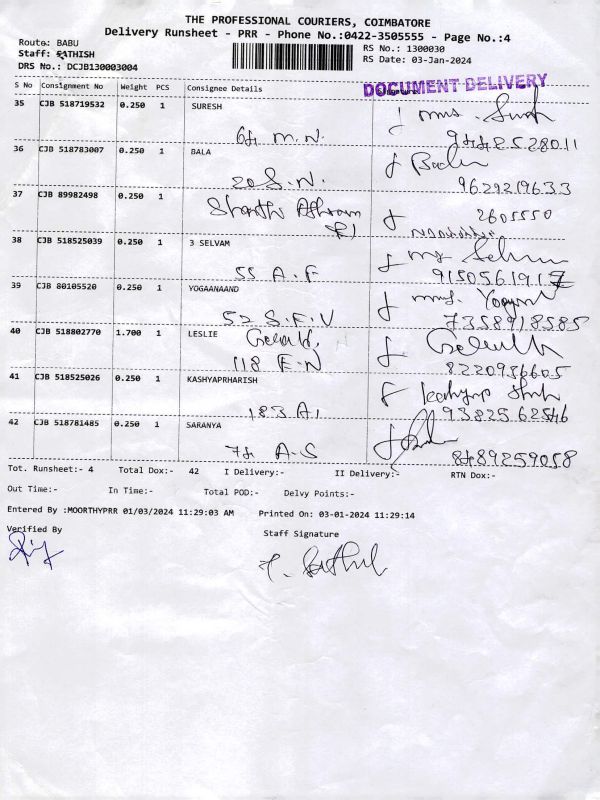 THE PROFESSIONAL COURIERS, COIMBATORE
Delivery Runsheet - PRR - Phone No.:0422-3505555 - Page No.:4
Route: BABU
RS No.: 1300030
Staff: SATHISH
RS Date: 03-Jan-2024
DRS No.: DCJB130003004
DOCUMENT DELIVERY
S No Consignment No Weight PCS Consignee Details
35 CJB 518719532 0.250 1 SURESH
64 M.N.
36 CJB 518783007 0.250 1 BALA
20 S.N. 9629219633
37 CJB 89982498 0.250 1
2605550
38 CJB 518525039 0.250 1 3 SELVAM
55 A.F 9150561917
39 CJB 80105520 0.250 1 YOGAANAAND
52 S.F.V 7358918585
40 CJB 518802770 1.700 1 LESLIE Gerald,
118 F-N 8220936605
41 CJB 518525026 0.250 1 KASHYAPRHARISH
183 A1
42 CJB 518781485 0.250 1 SARANYA
74 A-S 8489259058
Tot. Runsheet:- 4 Total Dox:- 42 I Delivery:- II Delivery:- RTN Dox:-
Out Time:- In Time:- Total POD:- Delvy Points:-
Entered By :MOORTHYPRR 01/03/2024 11:29:03 AM Printed On: 03-01-2024 11:29:14
Verified By
Staff Signature